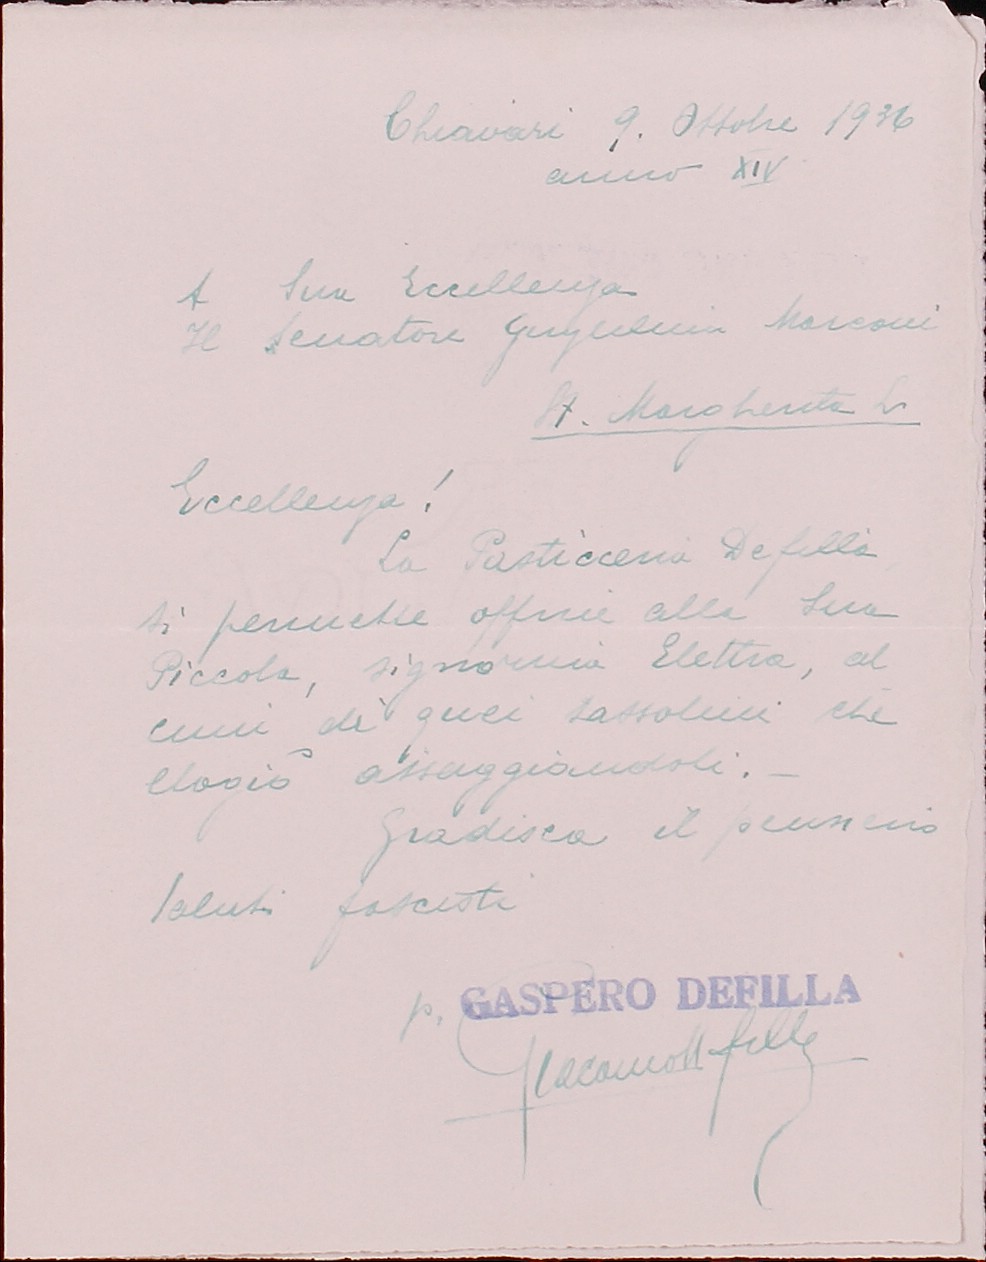 Chiavari 9. Ottobre 1936
anno XIV
A Sua Eccellenza
Il Senatore Guglielmo Marconi
St. Margherita L.
Eccellenza!
La Pasticceria Defilla
si permette offrire alla Sua
Piccola, signorina Elettra, al
cuni di quei sassolini che
elogiò assaggiandoli. —
Gradisca il pensiero
Saluti fascisti
p. GASPERO DEFILLA
Giacomo Defilla